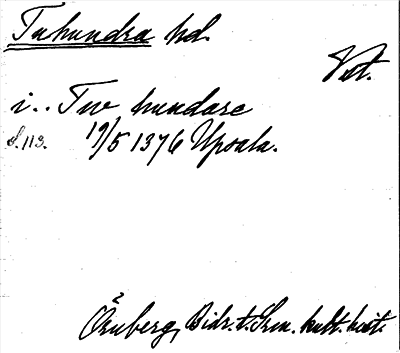 Tuhundra hd.
Vst.
i.. Tuv hundare
S. 113. 19/5 1376 Upsala.
Örnberg, Bidr. t. Srm. kult. hist.